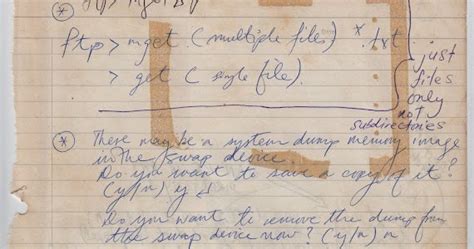 ftp > mget (multiple files) *.txt
> get ( single file).
just
files
only
not
subdirectories
There may be a system dump memory image
in the swap device.
Do you want to save a copy of it?
(y/n) y ↲
Do you want to remove the dump from
the swap device now? (y/n) n